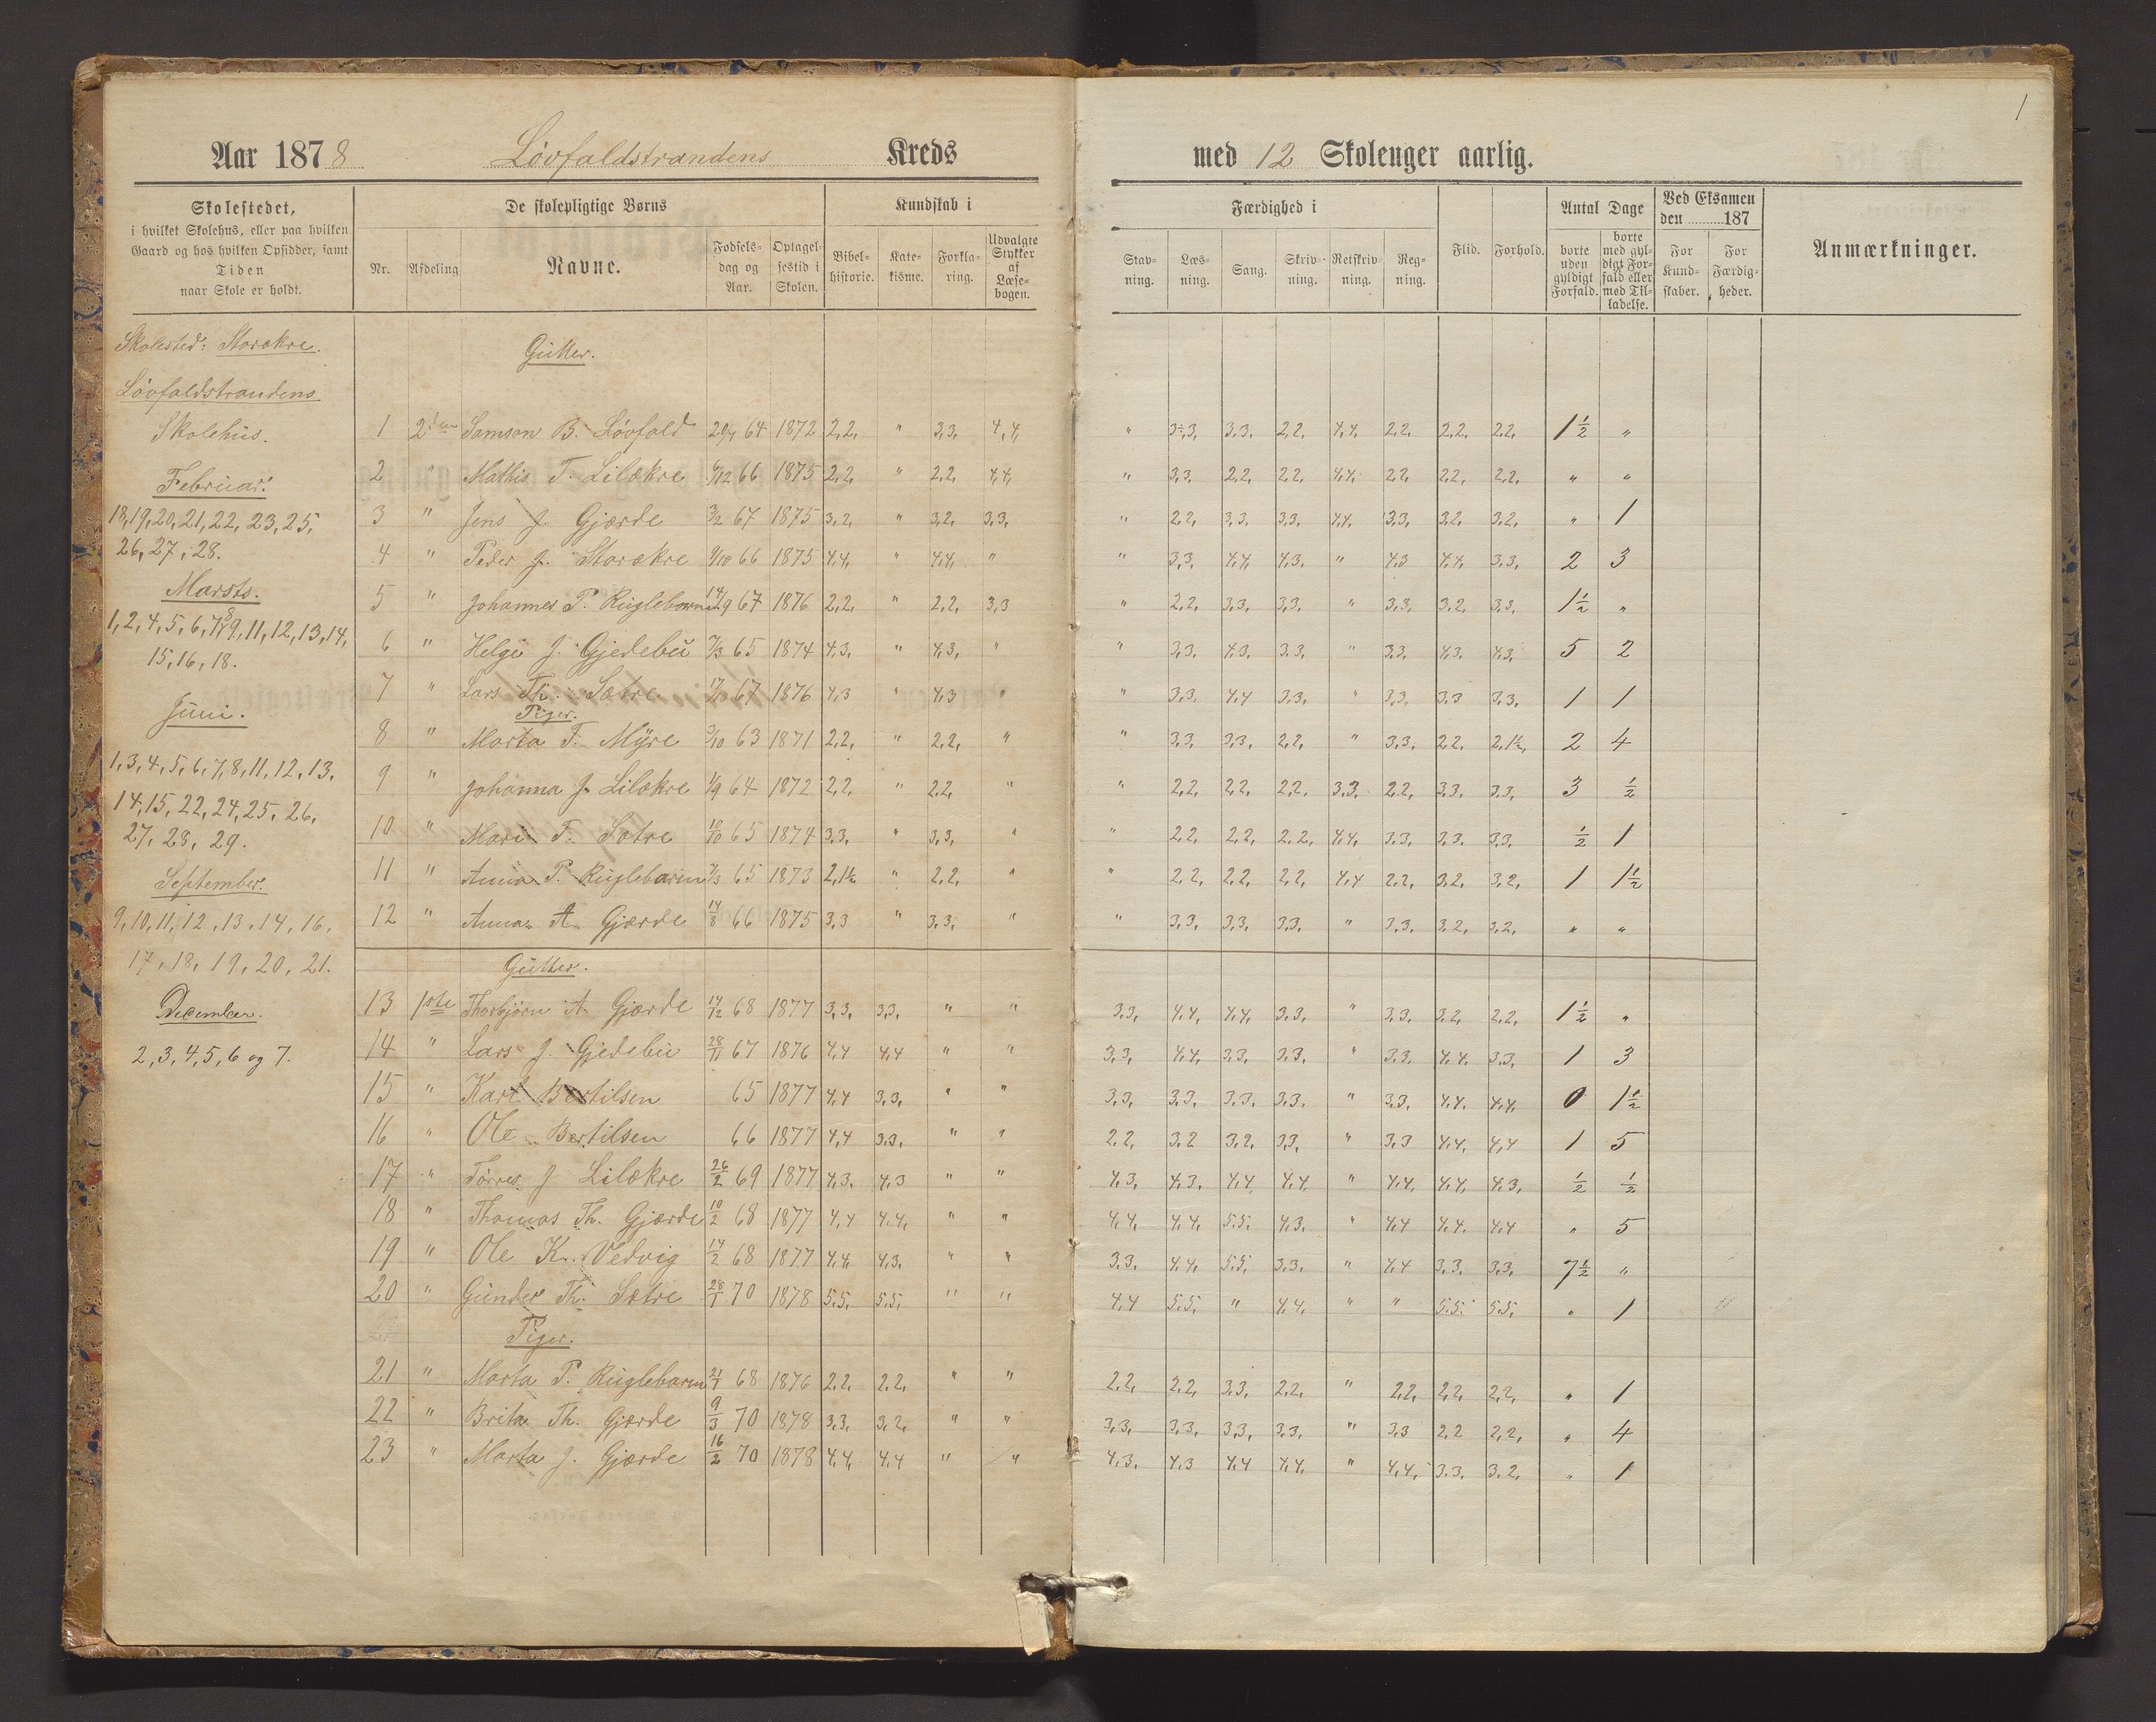 1
Aar 1878 Løvfaldstrandens Kreds med 12 Skoleuger aarlig.
Skolestedet,
i hvilket Skolehus, eller paa hvilken
Gaard og hos hvilken Opsidder, samt
Tiden
naar Skole er holdt.
De skolepligtige Børns
Nr. Afdeling Navne. Fødsels-dag og Aar. Optagel-sestid i Skolen.
Kundskab i
Bibel-historie. Kate-kisme. Forkla-ring. Udvalgte Stykker af Læse-bogen.
Færdighed i
Stav-ning. Læs-ning. Sang. Skriv-ning. Retskriv-ning. Reg-ning.
Flid. Forhold.
Antal Dage
borte uden gyldigt Forfald. borte med gyl-digt For-fald eller med Til-ladelse.
Ved Eksamen den 187
For Kund-skaber. For Færdig-heder.
Anmærkninger.
Skolested: Storakre.
Løvfaldstrandens
Skolehus.
Februar:
18, 19, 20, 21, 22, 23, 25,
26, 27, 28.
Marsts.
1, 2, 4, 5, 6, 7, 8, 9, 11, 12, 13, 14,
15, 16, 18.
Juni.
1, 3, 4, 5, 6, 7, 8, 11, 12, 13,
14, 15, 22, 24, 25, 26,
27, 28, 29.
September.
9, 10, 11, 12, 13, 14, 16,
17, 18, 19, 20, 21.
December.
2, 3, 4, 5, 6 og 7.
Gutter.
1 2den Samson B. Løvfald 29/4 64 1872 2,2, " 3,3, 4,4, " 3÷,3, 3,3, 2,2, 4,4, 2,2, 2,2, 2,2, 1½ "
2 " Mathis T. Lilækre 6/12 66 1875 2,2, " 2,2, 4,4, " 3,3, 2,2, 2,2, 4,4, 2,2, 2,2, 2,2, " "
3 " Jens J. Gjærde 3/2 67 1875 3,2, " 3,2, 3,3, " 2,2, 3,3, 3,3, 4,4, 3,3, 3,2, 3,2, " 1
4 " Peder J. Storækre 9/10 66 1875 4,4, " 4,4, " " 3,3, 4,4, 4,3, " 4,3 4,4, 3,3, 2 3
5 " Johannes P. Ruglebarm 14/9 67 1876 2,2, " 2,2, 3,3 " 2,2, 3,3, 3,3, " 3,3, 3,2, 3,3, 1½ "
6 " Helge J. Gjedebu 7/3 65 1874 4,3, " 4,3, " " 3,3, 4,3, 3,3, " 3,3, 4,3, 4,3, 5 2
7 " Lars Th. Sætre 17/10 67 1876 4,3 " 4,3 " " 3,3, 4,4 3,3, " 3,3, 3,3 3,3, 1 1
Piger.
8 " Marta T. Myre 3/10 63 1871 2,2, " 2,2, " " 3,3, 3,3, 2,2, " 3,3, 2,2, 2,1½, 2 4
9 " Johanna J. Lilækre 1/9 64 1872 2,2, " 2,2, " " 2,2, 2,2, 2,2, 3,3, 2,2, 3,3, 3,3, 3 ½
10 " Mari T. Sætre 10/10 65 1874 3,3, " 3,3, " " 2,2, 2,2, 2,2, 4,4, 3,3, 3,3, 3,3, ½ 1
11 " Anna P. Ruglebarm 7/3 65 1873 2,1½ " 2,2, " " 2,2, 2,2, 2,2, 4,4 2,2, 3,2, 3,2, 1 1½
12 " Anna A. Gjærde 14/8 66 1875 3,3 " 3,3, " " 3,3, 3,3, 3,3, " 3,3, 3,2, 3,2, " "
Gutter.
13 1ste Thorbjørn A. Gjærde 14/12 68 1877 3,3, 3,3, " " 3,3, 4,4, 4,4, 3,3, " 3,3, 3,2, 2,2, 1½ "
14 " Lars J. Gjedebu 28/11 67 1876 4,4 4,4 " " 3,3, 4,4, 3,3, 3,3, " 3,3, 4,4, 3,3, 1 3
15 " Karl Bertilsen 65 1877 4,4 3,3, " " 3,3, 3,3, 3,3, 3,3, " 3,3, 4,4, 4,4, 0 1½
16 " Ole Bertilsen 66 1877 4,4 3,3, " " 2,2, 3,2 3,2, 3,3, " 3,3 4,4, 4,4 1 5
17 " Tørres J Lilækre 26/2 69 1877 4,3, 4,3 " " 4,3, 4,3, 4,4 4,4, " 4,4, 4,4, 4,3, ½ ½
18 " Thomas Th. Gjærde 10/2 68 1877 4,4 4,4, " " 4,4, 4,4, 5,5, 4,3, " 4,4 4,4, 4,4 " 5
19 " Ole K. Vedvig 14/2 68 1877 4,4, 4,3, " " 3,3, 4,4, 5,5, 3,3, " 4,4 3,3, 3,3, 7½ "
20 " Gunder Th. Sætre 28/1 70 1878 5,5, 5,5, " " 4,4 5,5, " 4,4, " " 5,5, 5,5, " 1
Piger.
21 " Marta P. Ruglebarm 21/1 68 1876 2,2, 2,2, " " 2,2, 2,2, 3,3, 2,2, " 2,2, 2,2, 2,2, " 1
22 " Brita Th. Gjærde 9/3 70 1878 3,3, 3,2, " " 3,3, 3,3, 3,3, 3,3, " 3,3 2,2 2,2, " 4
23 " Marta J. Gjærde 16/2 70 1878 4,4, 4,4 " " 4,3, 4,3 4,4 4,4, " 4,4, 3,3, 3,2, " 1